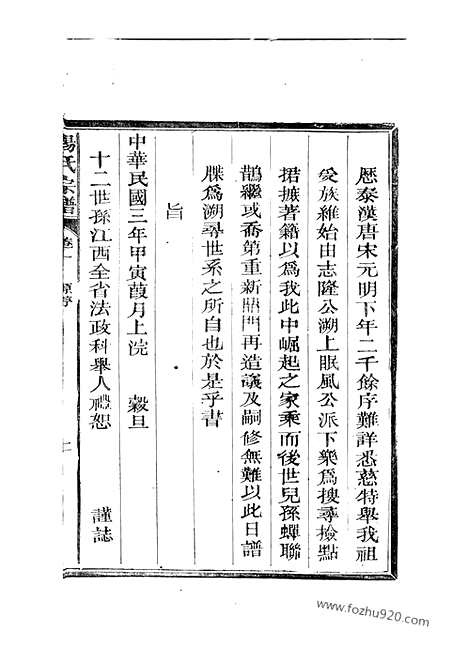 歷秦漢唐宋元明下年二千餘序難詳悉慈特舉我祖
爰族維始由志隆公溯上眠風公派下槩為搜尋檢點
捃摭著籍以為我此中崛起之家乘而後世兒孫蟬聯
鵲繼或喬第重新鼎門再造議及嗣修無難以此日譜
牒為溯尋世系之所自也於是乎書
旨
中華民國三年甲寅葭月上浣 穀旦
十二世孫江西全省法政科舉人禮恕 謹誌
氏宗譜 卷一 原序
www.fozhu920.com